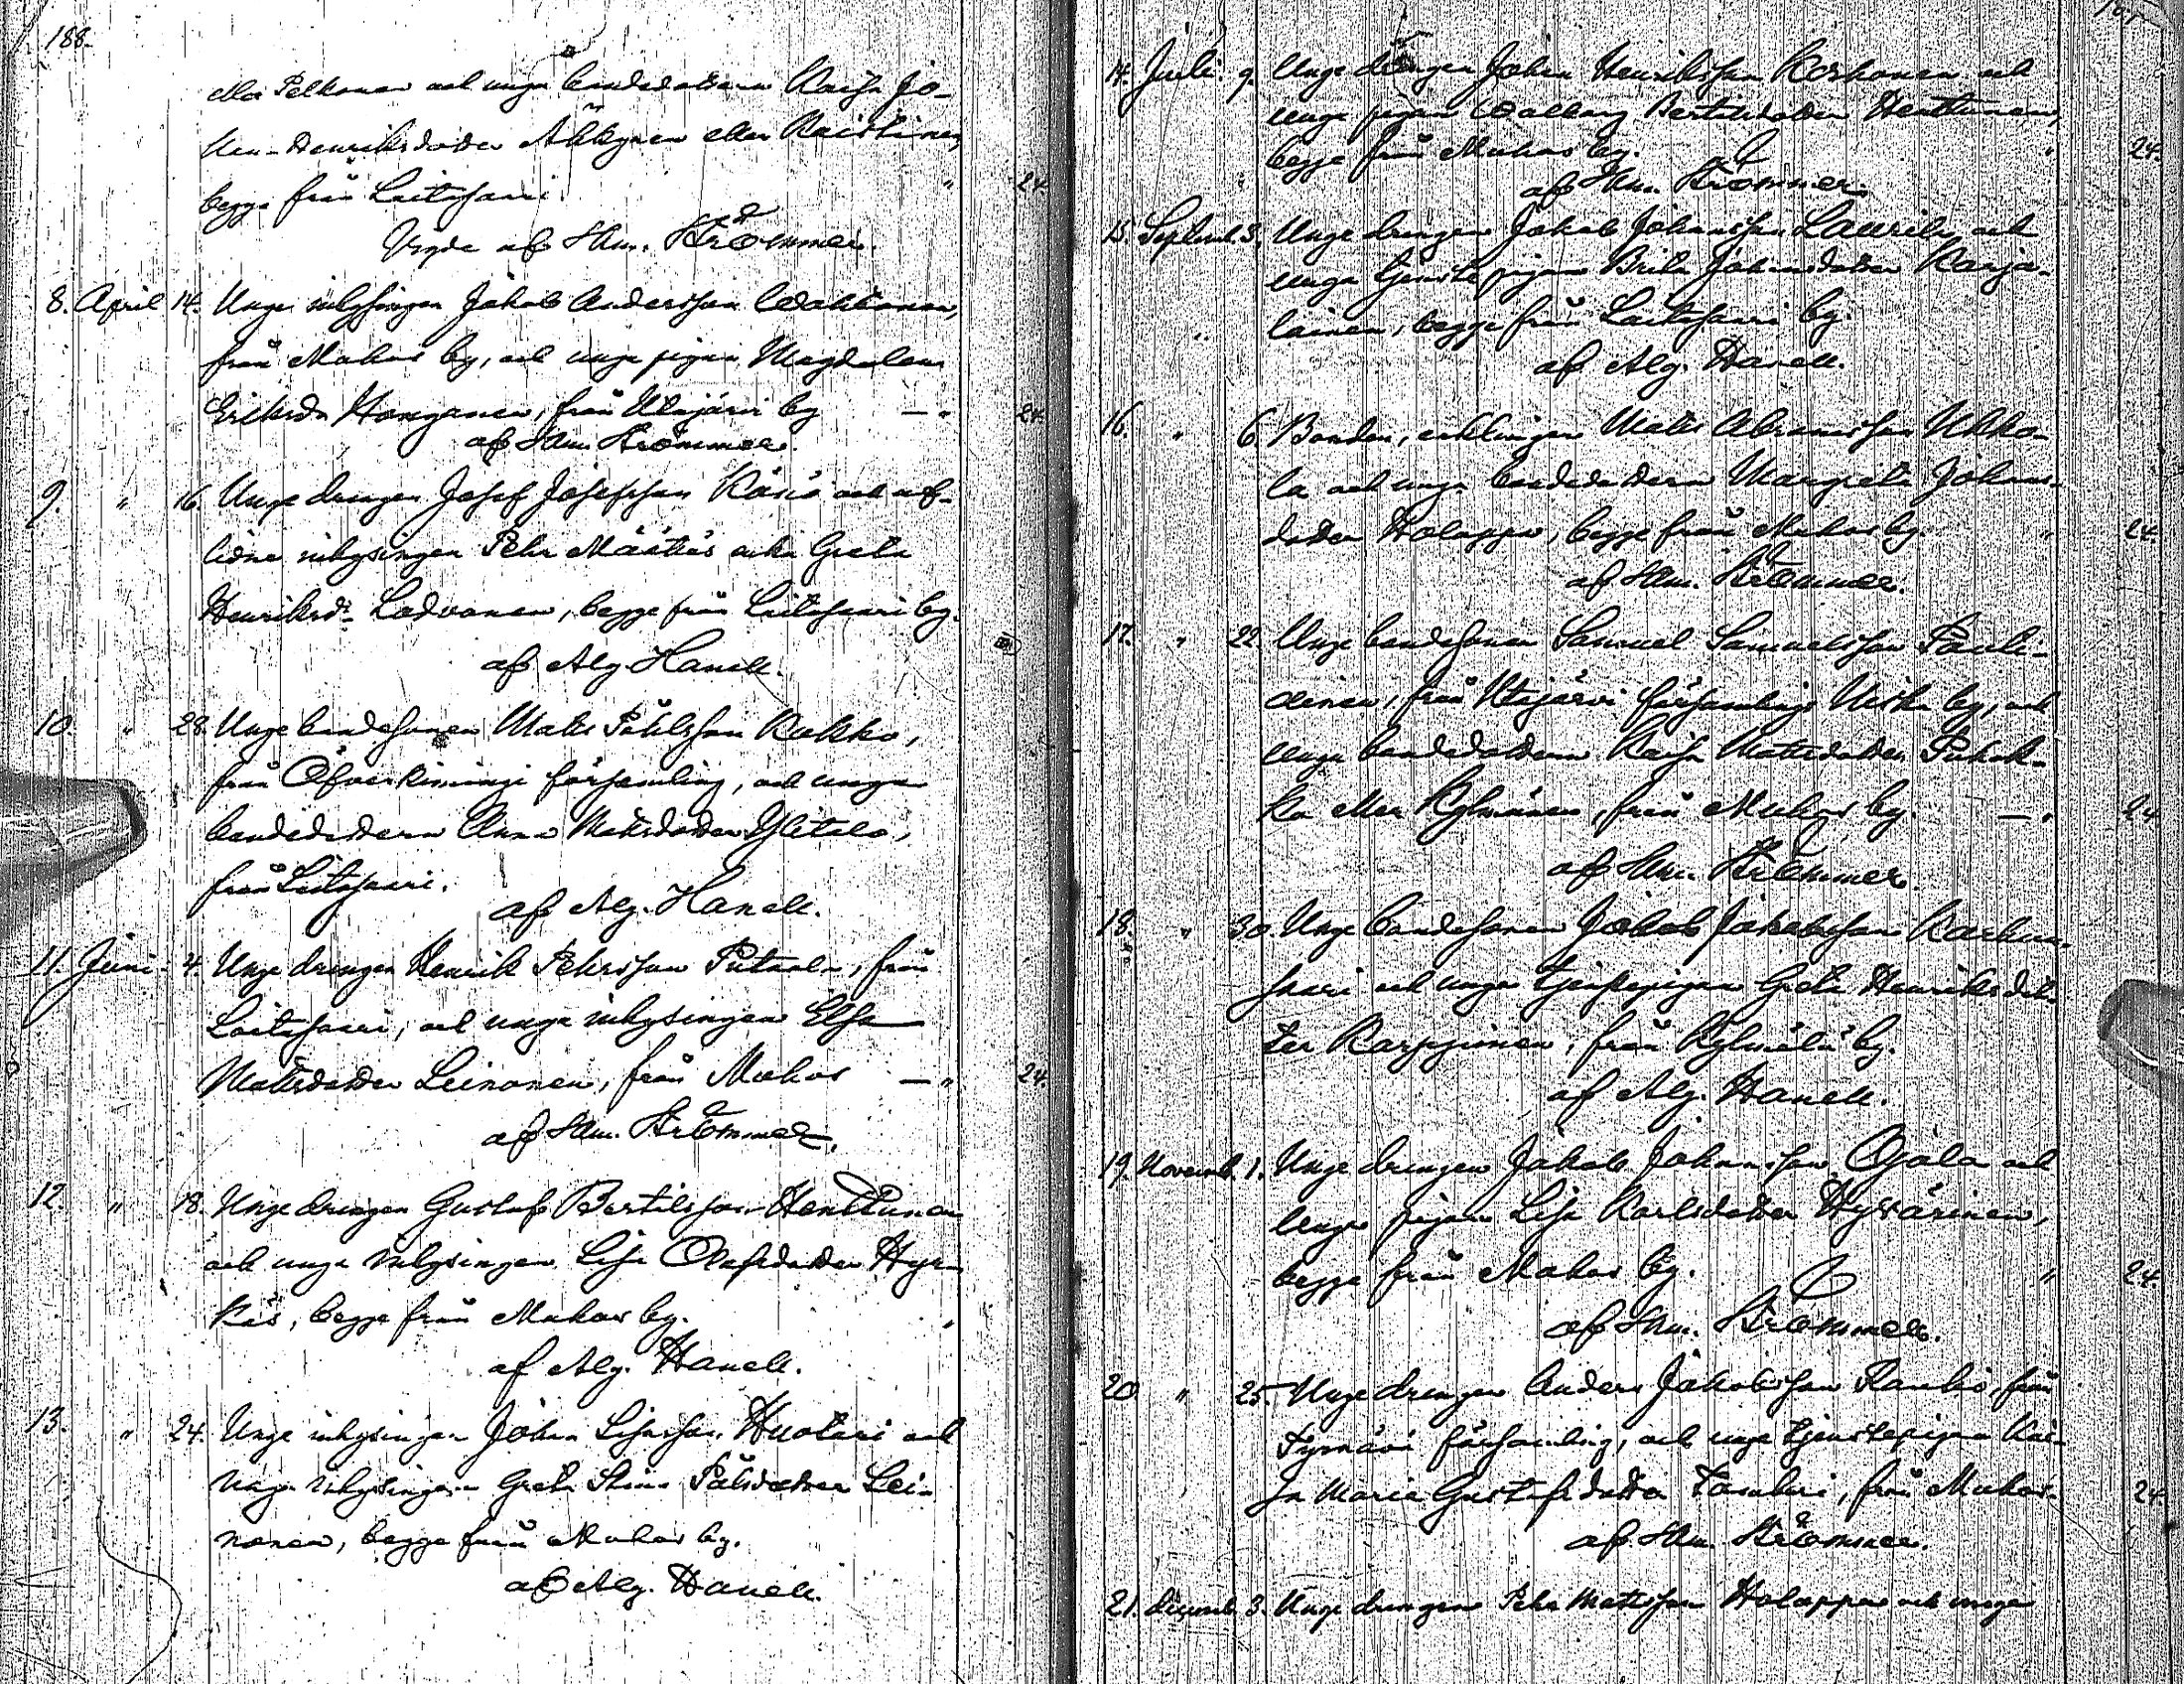 188.
eller Pelkonen och unga bondedottern Kaisa Jo-
Henriksdotter Ahkynen eller Raistinen,
begge från Laitasaari " 24.
Vigde af Hm. Krömmer.
8. April 14. Unge inhysingen Jakob Andersson Wakkonen,
från Muhos by, och unga pigan Magdalena
Eriksd:r Honganen, från Utajärvi by —" 24.
af Hm. Krömmer.
9. " 16. Unge drengen Josef Josefsson Räsis och af-
lidne inhysingen Pehr Määttäs enka Greta
Henriksd:r Ladvanen, begge från Laitasaari by.
af Alg. Hanell.
10. " 28. Unge bondesonen Matts Påhlsson Kokko,
från Öfverkiminge församling, och unga
bondedottern Anna Mattsdotter Ylitalo,
från Laitasaari.
af Alg. Hanell.
11. Juni 4. Unge drengen Henrik Pehrsson Putaala, från
Laitasaari, och unga inhysingen Elsa
Mattsdotter Leinonen, från Muhos —" 24.
af Hm. Krömmer.
12. " 18. Unge drengen Gustaf Bertilsson Henttunen
och unga inhysingen Lisa Olofsdotter Hyr-
käs, begge från Muhos by. "
af Alg. Hanell.
13. " 24. Unge inhysingen Johan Johansson Huotari och
unga inhysingen Greta Stina Pålsdotter Lei-
nonen, begge från Muhos by.
af Alg. Hanell.
14. Juli 9. Unge drengen Johan Henriksson Korhonen och
unga pigan Walborg Bertilsdotter Henttunen,
begge från Muhos by. " 24.
af Hm. Krömmer.
15. Septemb. 3. Unge drengen Jakob Johansson Laurila och
unga tjenstepigan Brita Johansdotter Karja-
lainen, begge från Laitasaari by.
af Alg. Hanell.
16. " 6. Bonden, enklingen Matts Abramsson Ukko-
la och unga bondedottern Margreta Johans-
dotter Holappa, begge från Muhos by. " 24.
af Hm. Krömmer.
17. " 22. Unge bondesonen Samuel Samuelsson Pauli-
från Utajärvi församlings by, och
unga bondedottern Kaisa Mattsdotter Puhak-
ka eller Kylmänen, från Muhos by. —" 24
af Hm. Krömmer.
18. " 30. Unge bondesonen Jakob Jakobsson Karhun-
saari och unga tjenstepigan Greta Henriksdot-
ter Karppinen, från Kylmälä by.
af Alg. Hanell.
19. Novemb. 1. Unge drengen Jakob Johansson Ojala och
unga pigan Lisa Karlsdotter Hyvärinen,
begge från Muhos by. " 24.
af Hm. Krömmer.
20 " 25. Unge drengen Anders Jakobsson Rankö, från
Tyrnävä församling, och unga tjenstepigan Kai-
sa Maria Gustafsdotter Tomberi, från Muhos. 24
af Hm. Krömmer.
21. Decemb. 3. Unge drengen Pehr Mattsson Holappa och unga